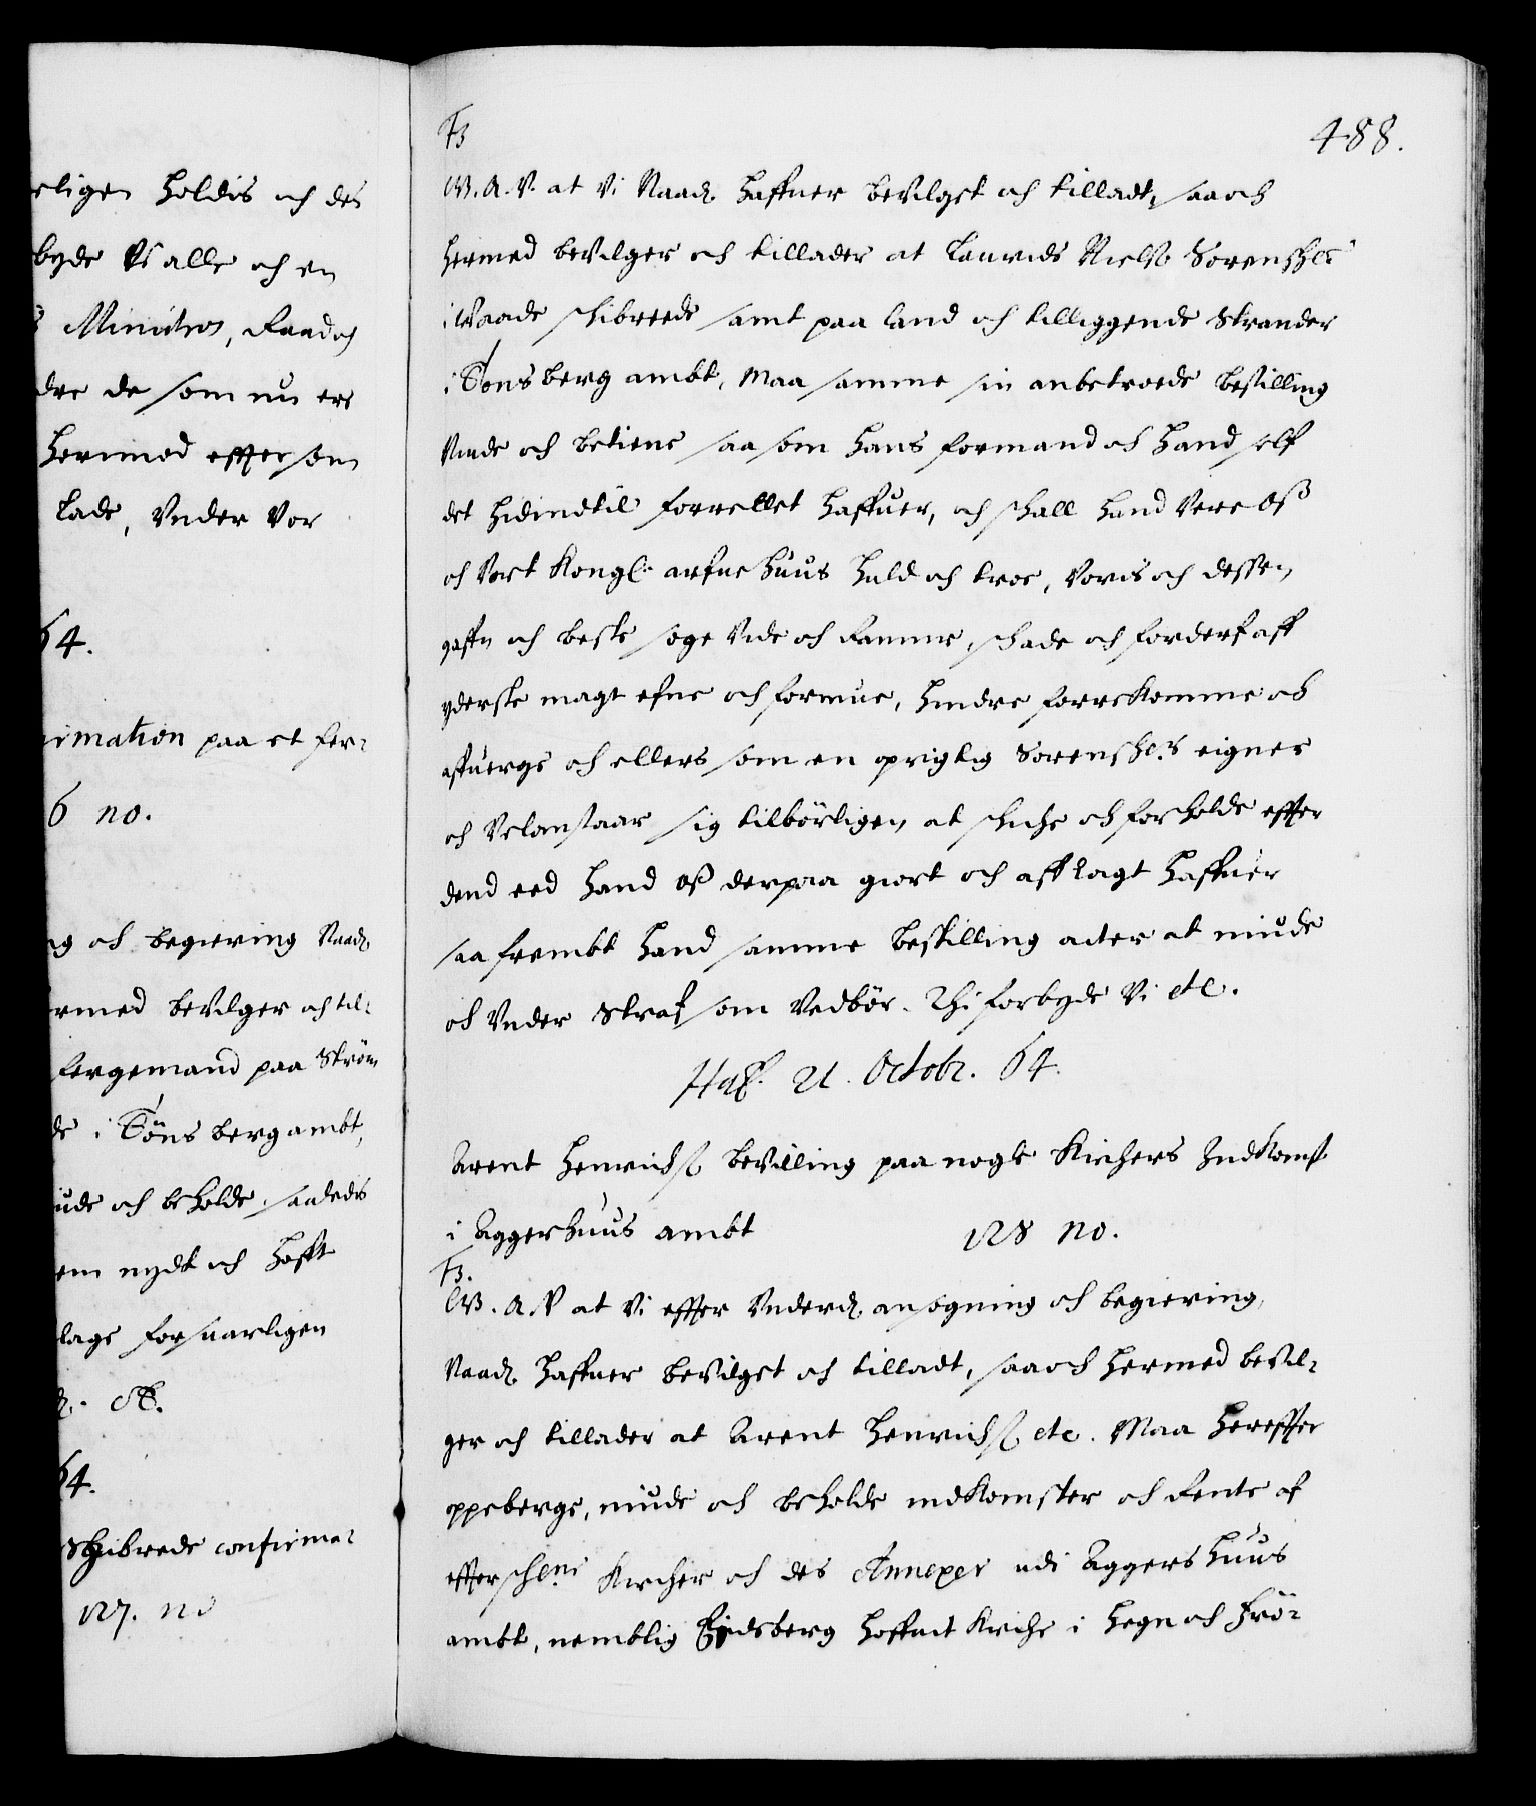 erligen holdis och des
byde Vi alle och en
Ministros, Raad och
dre de som nu ere
hermed effter som
lade, Vnder Vor
64.
irmation paa et fer-
6 no.
ng och begiering Naad.
ermed bevilger och til-
fergemand paa Ström
de i Tönsberg ambt,
iude och beholde saaledis
em nydt och hafft
lage forsuarligen
etc.
64.
Schibrede confirma-
127. no
F3
488.
W. A. V. at Vi Naad. haffuer bevilget och tilladt, saa och
hermed bevilger och tillader at Laurids Nielß. Sorenschr
i Waade schibreede samt paa land och tilliggende Strander
i Tonsberg ambt, maa samme sin anbetroede bestilling
niude och betiene saa som hans formand och hand self
det hidindtil forrettet haffuer, och schall hand Vere Oß
och Vort Kongl: arfue huus huld och troe, Voris och dessen
gaffn och beste söge Vide och Ramme, schade och forderf aff
yderste magt efne och formue, hindre forrekomme och
affuerge och ellers som en oprigtig Sorenschr. eigner
och Velanstaar sig tilbörligen at schiche och forholde effter
dend eed hand oß derpaa giort och afflagt haffuer
saa frembt hand samme bestilling acter at niude
och Vnder Straf som Vedbör. Thi forbyde Vi etc.
Haff. 21. Octobr. 64.
Arent Henrichß. bevilling paa nogle Kirchers Indkomst
i Aggershuus ambt 128 no.
F3.
W. A. V at Vi effter Vnderd. ansogning och begiering,
Naad. haffuer bevilget och tilladt, saa och hermed bevil-
ger och tillader at Arent Henrichß. etc. Maa hereffter
oppeberge, niude och beholde indkomster och Rente af
efftersch.ne Kircher och des Annexer udi Aggershuus
ambt, nemblig Eidsberg hoffuit Kirche i Hegn och Frö-